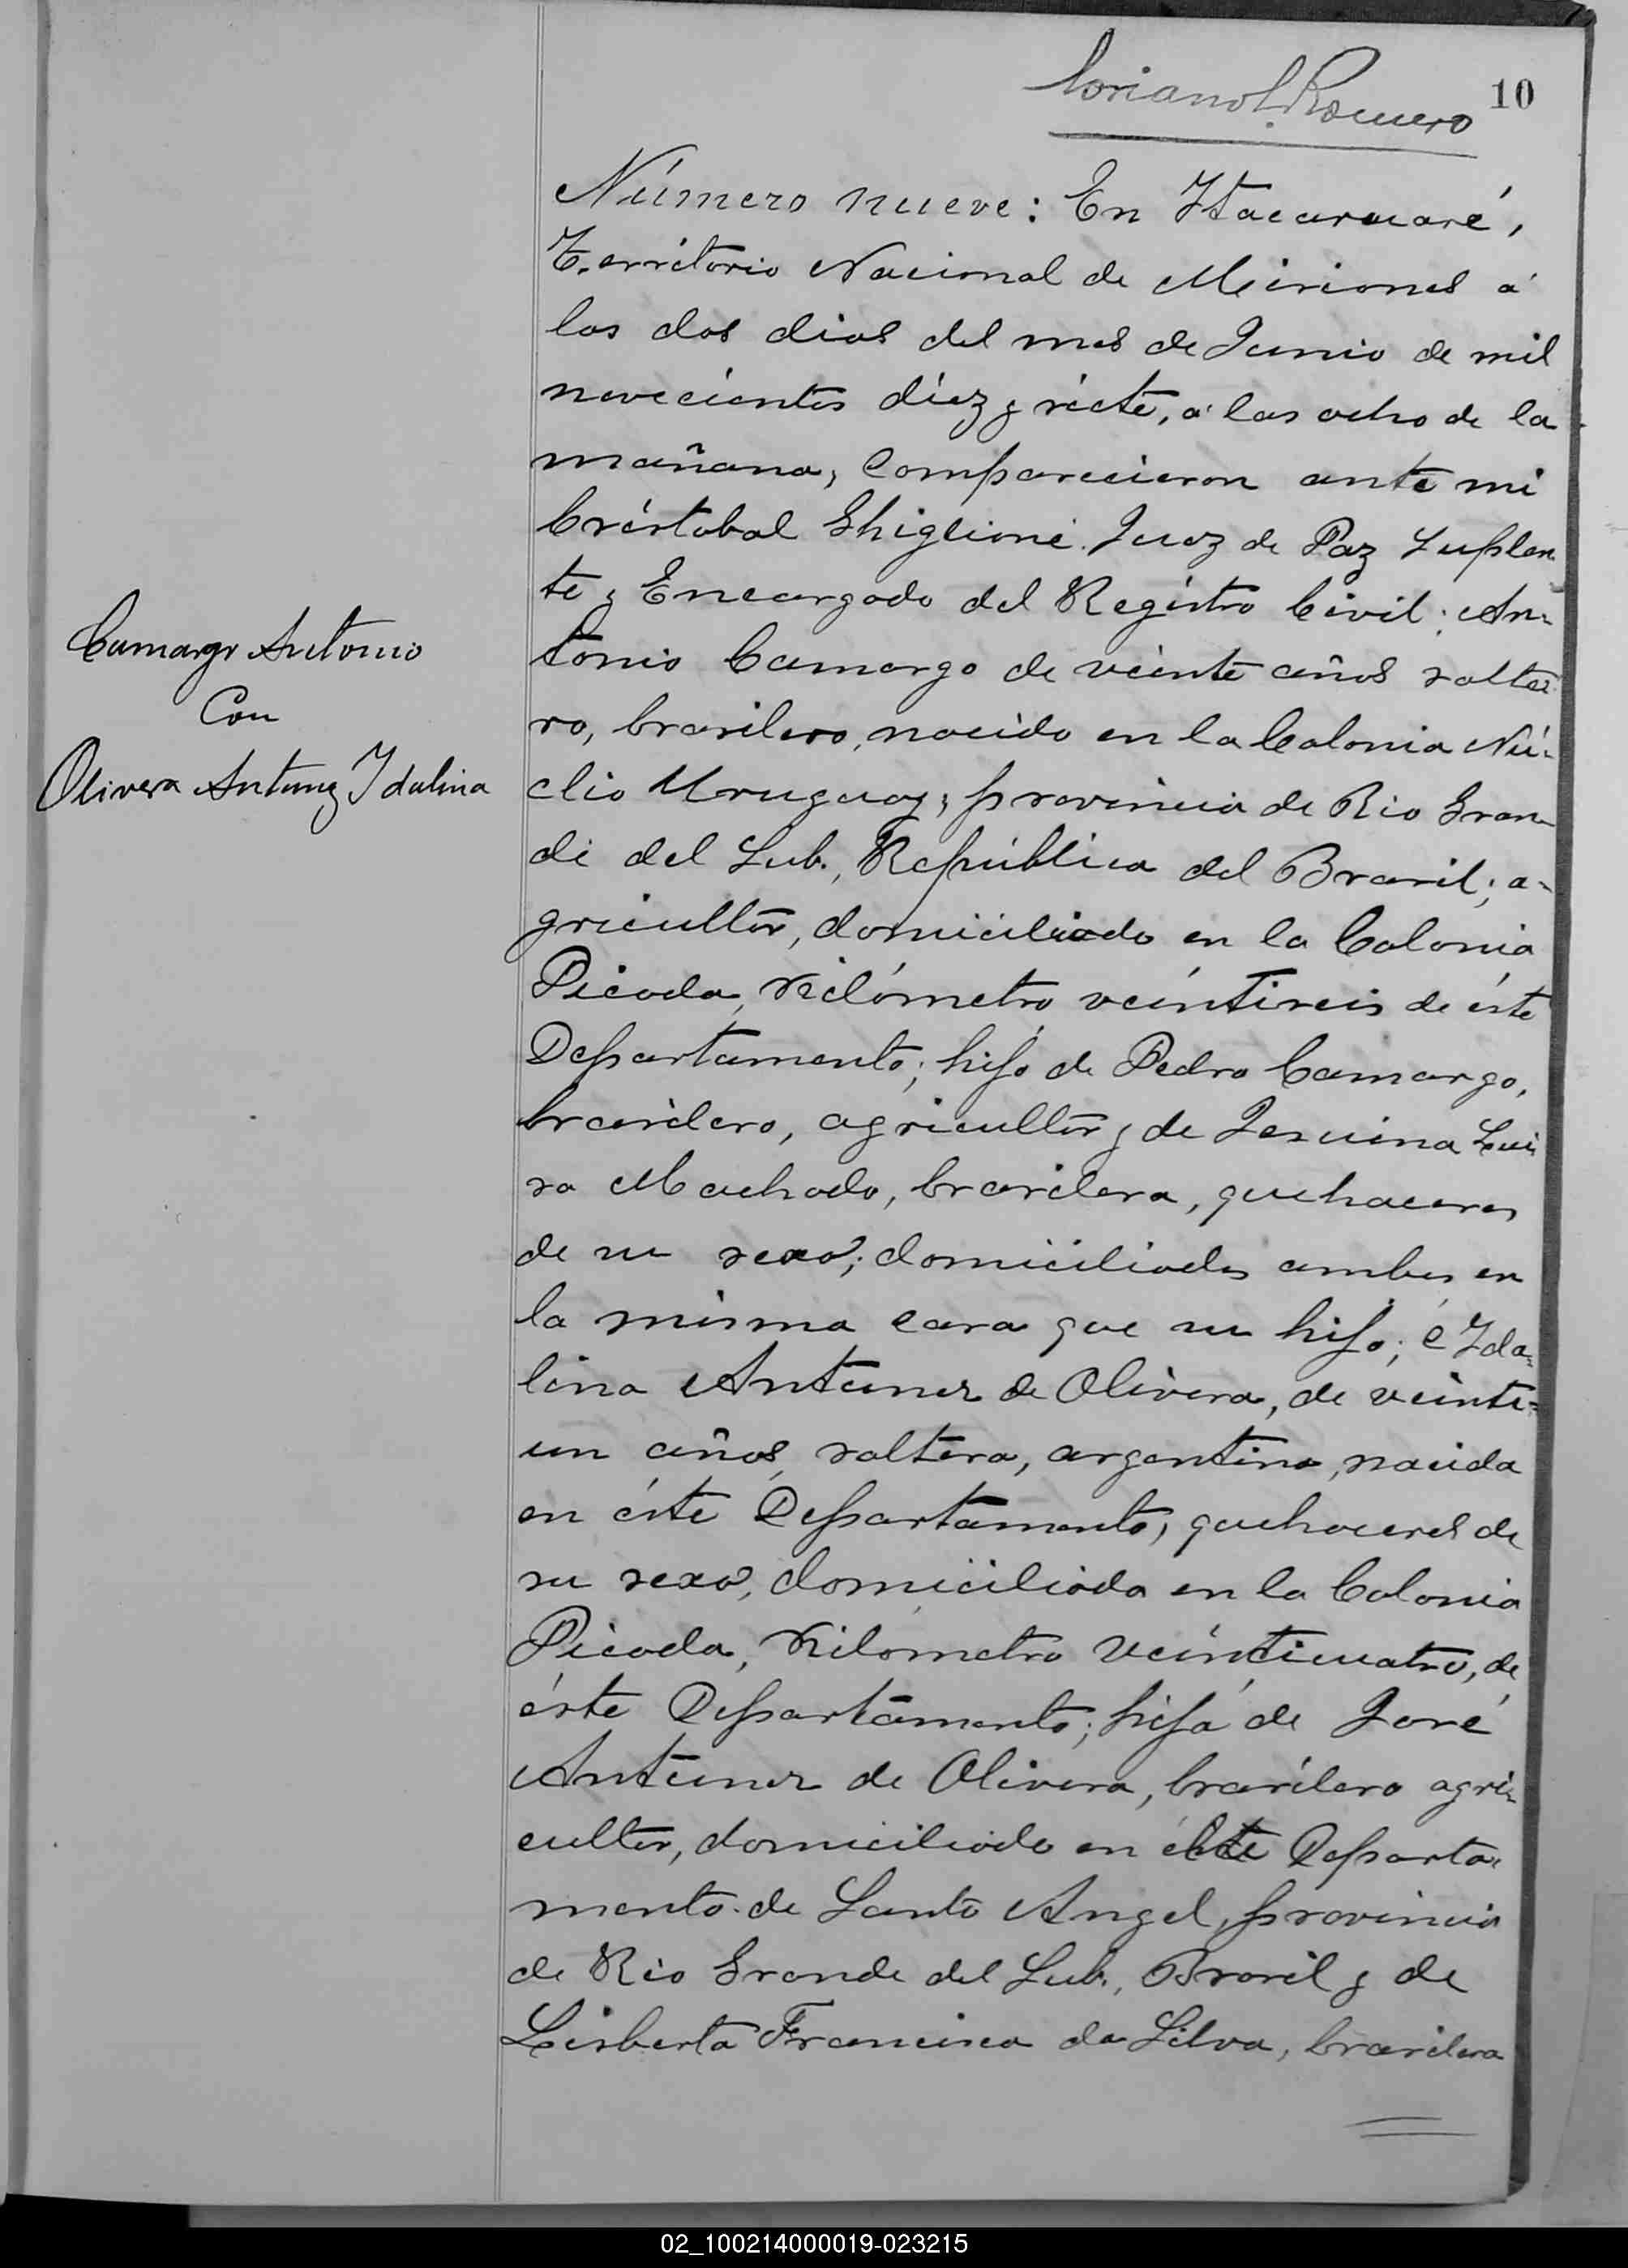 Coriano L. Romero
10
Número nueve: En Itacaruaré,
Territorio Nacional de Misiones á
los dos dias del mes de Junio de mil
novecientos díez y siete, a las ocho de la
mañana, comparecieron ante mi
Cristobal Ghiglione. Juez de Paz Suplen
te y Encargado del Registro Civil: An=
tonio Camargo de veinte años solte=
ro, brasilero, nacido en la Colonia Nú=
clio Uruguay, provincia de Rio Gran
de del Sub., República del Brasil; a=
gricultor, domiciliado en la Colonia
Picada, Kilómetro veintiseis de éste
Departamento; hijo de Pedro Camargo,
brasilero, agricultor y de Jesuina Lui
sa Machado, brasilera, quehaceres
de su sexo; domiciliados ambos en
la misma casa que su hijo; é Ida=
lina Antunez de Olivera, de veinti=
un años, soltera, argentina, nacida
en éste Departamento, quehaceres de
su sexo, domiciliada en la Colonia
Picada, Kilómetro veinticuatro, de
éste Departamento; hija de José
Antunez de Olivera, brasilero agri=
cultor, domiciliado en éste Departa=
mento de Santo Angel, provincia
de Rio Grande del Sub., Brasil y de
Lisberta Francisca da Silva, brasilera
Camargo Antonio
Con
Olivera Antunez Idalina
02_100214000019-023215